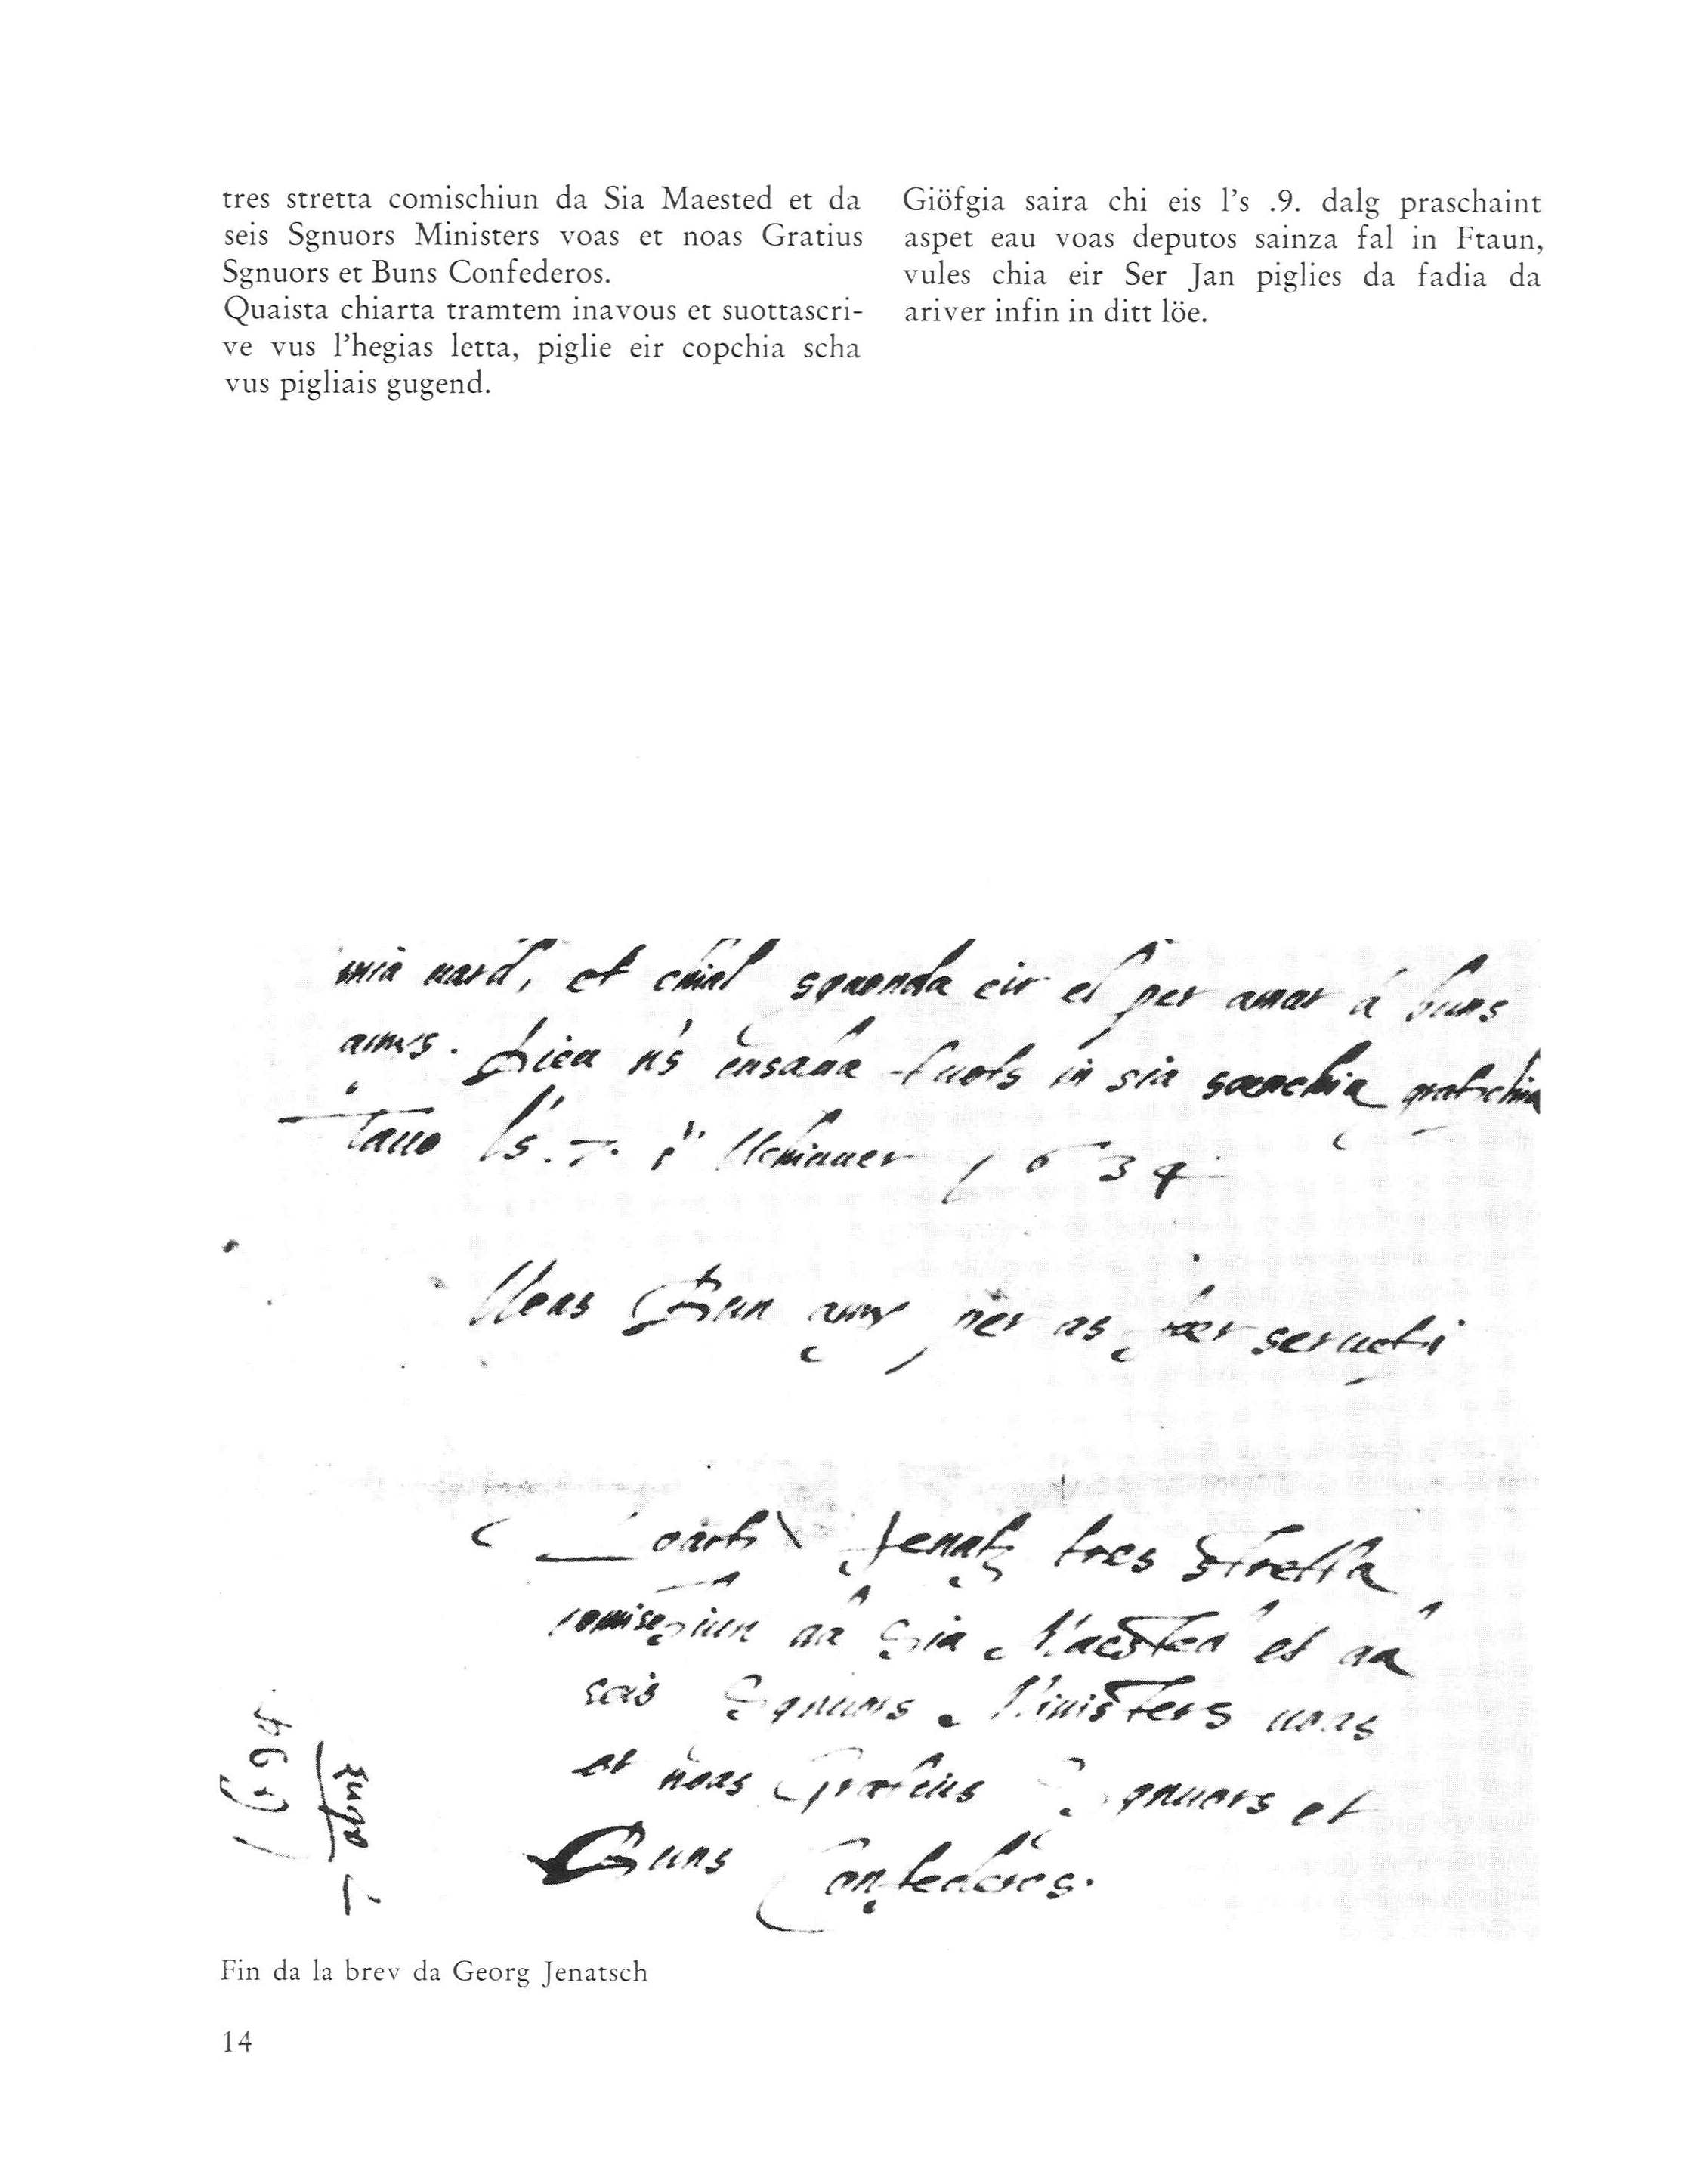 tres stretta comischiun da Sia Maested et da
seis Sgnuors Ministers voas et noas Gratius
Sgnuors et Buns Confederos.
Quaista chiarta tramtem inavous et suottascri-
ve vus l'hegias letta, piglie eir copchia scha
vus pigliais gugend.
Giöfgia saira chi eis l's .9. dalg praschaint
aspet eau voas deputos sainza fal in Ftaun,
vules chia eir Ser Jan piglies da fadia da
ariver infin in ditt löe.
mia vard, et chial sgvonda eir el per amar á buns
amys. Dieu n's cnsalva tuots in sia soenchia gratschia
Tavo l's .7. Schianer 163
Voas Bun amy per as faer servetsi
Jenatz tres stretta
comischiun da Sia Maested et da
seis Sgnuors Ministers voas
et noas Gratius Sgnuors et
Buns Confederos.
Fin da la brev da Georg Jenatsch
14